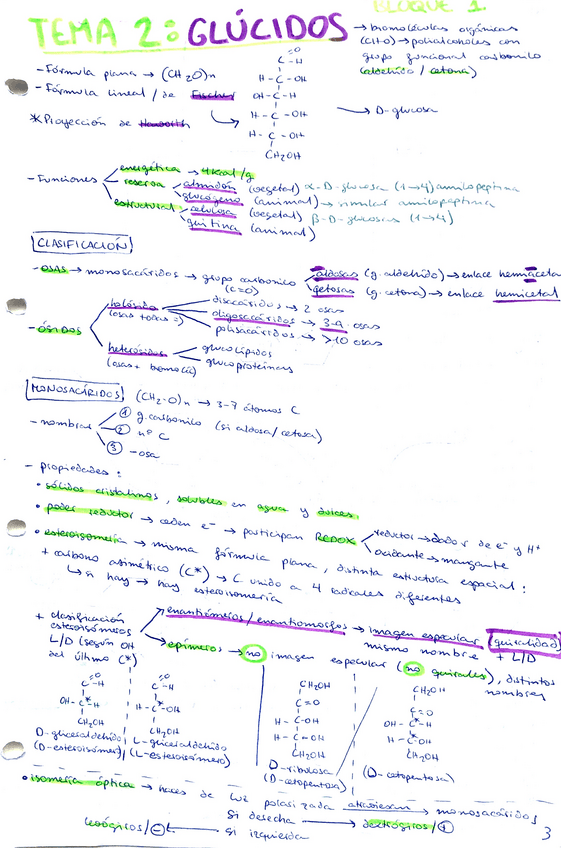 BLOQUE 1
TEMA 2: GLÚCIDOS → biomoléculas orgánicas
(CHO) → polialcoholes con
grupo funcional carbonilo
(aldehído / cetona)
- Fórmula plana → (CH2O)n
- Fórmula lineal / de Fischer
* Proyección de Haworth
C=O
-H
H-C-OH
OH-C-H
H-C-OH
H-C-OH
CH2OH
→ D-glucosa
- Funciones
energética → 4 kcal/g
reserva
almidón (vegetal) α-D-glucosa (1→4) amilopeptina
glucógeno (animal) → similar amilopeptina
estructural
celulosa (vegetal) β-D-glucosas (1→4)
quitina (animal)
CLASIFICACIÓN
- OSAS → monosacáridos → grupo carbonilo
(C=O)
aldosas (g. aldehído) → enlace hemiaceta
cetosas (g. cetona) → enlace hemicetal
- ÓSIDOS
holósidos
(osas todas =)
disacáridos → 2 osas
oligosacáridos → 3-9 osas
polisacáridos → >10 osas
heterósidos
(osas + biomoléc)
glucolípidos
glucoproteínas
MONOSACÁRIDOS (CH2-O)n → 3-7 átomos C
- nombrar
1 g. carbonilo (si aldosa/cetosa)
2 nº C
3 -osa
- propiedades:
• sólidos cristalinos, solubles en agua y dulces
• poder reductor → ceden e- → participan REDOX
reductor → dador de e- y H+
oxidante →
• estereoisomería → misma fórmula plana, distinta estructura espacial:
+ carbono asimétrico (C*) → C unido a 4 radicales diferentes
↳ si hay → hay estereoisomería
+ clasificación
estereoisómeros
L/D (según OH
del último C*)
enantiómeros/enantiomorfos → imagen especular (quiralidad)
mismo nombre + L/D
epímeros → no imagen especular (no quirales), distintos
nombres
C=O
-H
OH-C*-H
CH2OH
D-gliceraldehído
(D-estereoisómero)
C=O
-H
H-C*-OH
CH2OH
L-gliceraldehído
(L-estereoisómero)
CH2OH
C=O
H-C-OH
H-C-OH
CH2OH
D-ribulosa
(D-cetopentosa)
CH2OH
C=O
OH-C*-H
H-C-OH
CH2OH
(D-cetopentosa)
• isomería óptica → haces de luz polarizada atraviesan → monosacáridos
si desecha → dextrógiros/+
levógiros/- ← si izquierda
3